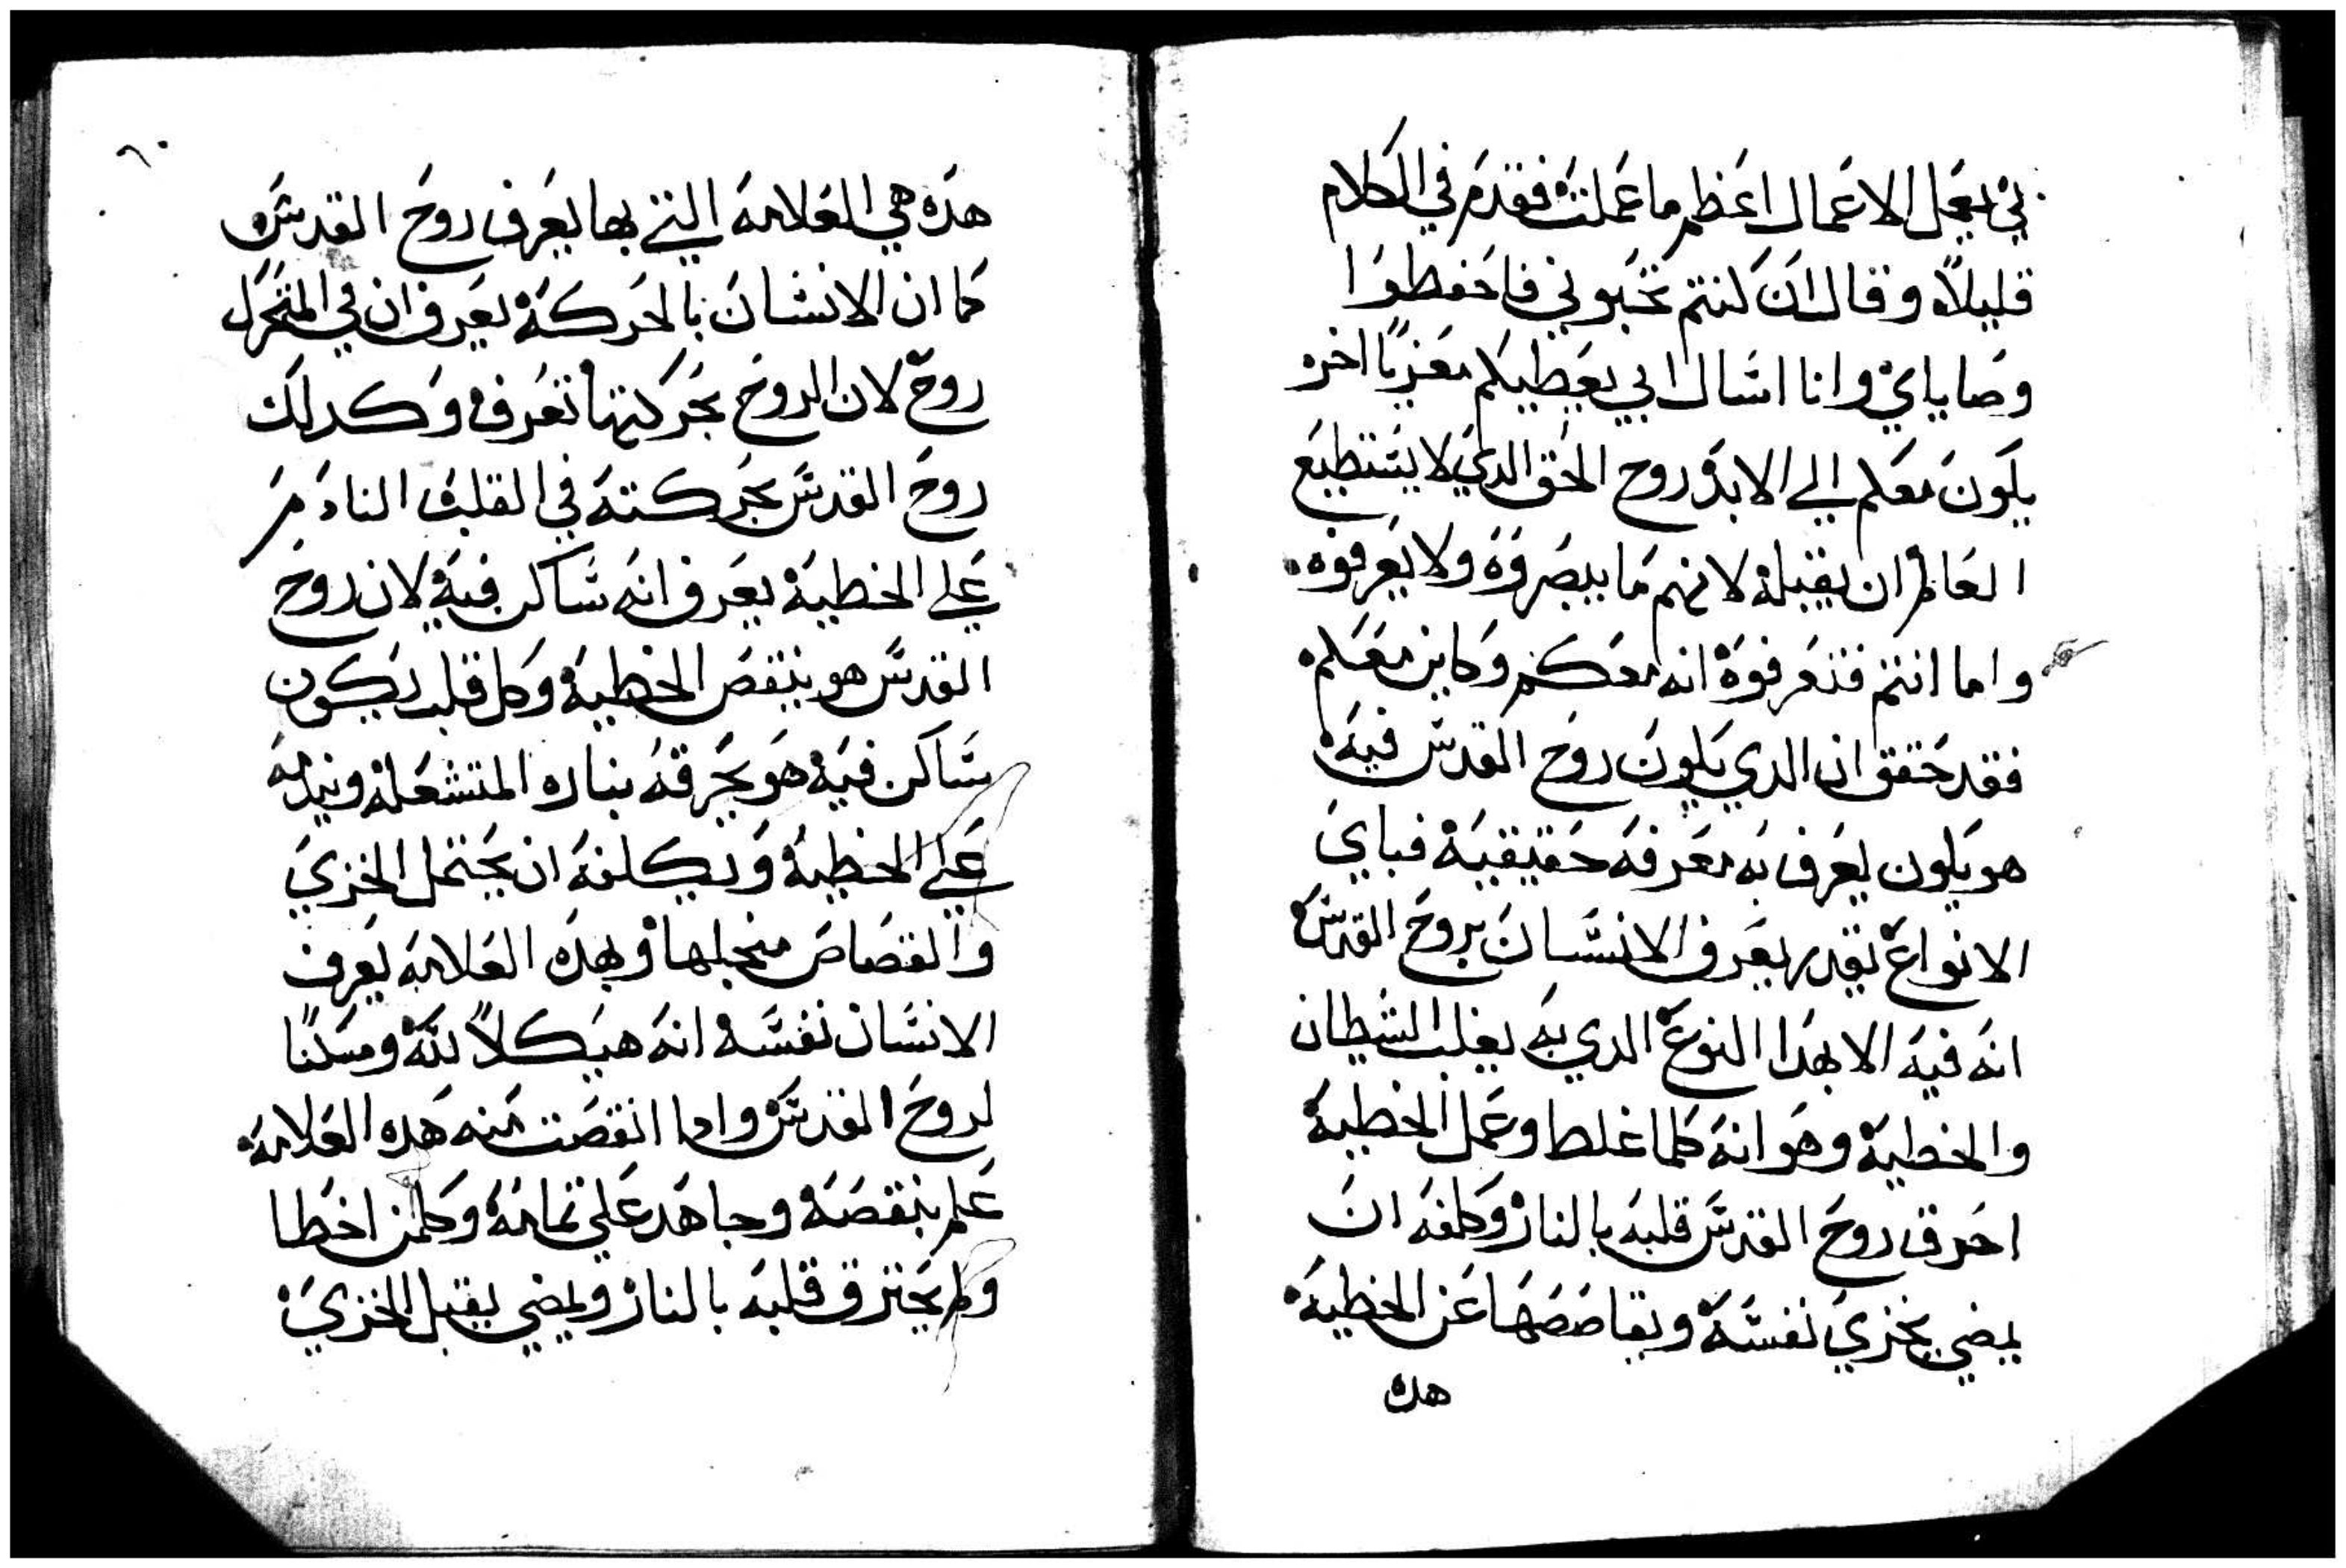 بي يعمل الاعمال اعظم ما عملت فقدم في الكلام
قليلاً وقال ان كنتم تحبوني فاحفطوا
وصاياي وانا اسال ابي يعطيكم معزيًا اخر
يكون معكم الي الابد روح الحق الدي لا يستطيع
العالم ان يقبله لانهم ما يبصروه ولا يعرفوه
واما انتم فتعرفوه انه معكم وكاين معكم
فقد حقق ان الدي يكون روح القدس فيه
هو يكون يعرف به معرفه حقيقيه فباي
الانواع يقدر يعرف الانسان بروح القدس
انه فيه الا بهدا النوع الدي به يغلب الشطان
والخطيه وهو انه كلما غلط وعمل الخطيه
احرق روح القدس قلبه بالنار وكلفه ان
يمضي يخزي نفسه ويقاصصها عن الخطيه
هده
٦٠
هده هي العلامه التي بها يعرف روح القدس
كما ان الانسان بالحركه يعرف ان في المتحرك
روح لان الروح بحركتها تعرف وكدلك
روح القدس بحركته في القلب النادم
علي الخطيه يعرف انه ساكن فيه لان روح
القدس هو ينقص الخطيه وكل قلب يكون
ساكن فيه هو يحرقه بناره المتشعله ويندمه
علي الخطيه ويكلفه ان يحتمل الخزي
والقصاص منجلها وبهده العلامه يعرف
الانسان نفسه انه هيكلاً لله ومسكنًا
لروح القدس وادا انقصت منه هده العلامه
علم بنقصه وجاهد علي تمامه وكلمن اخطا
ولم يحترق قلبه بالنار ويمضي يقبل الخزي